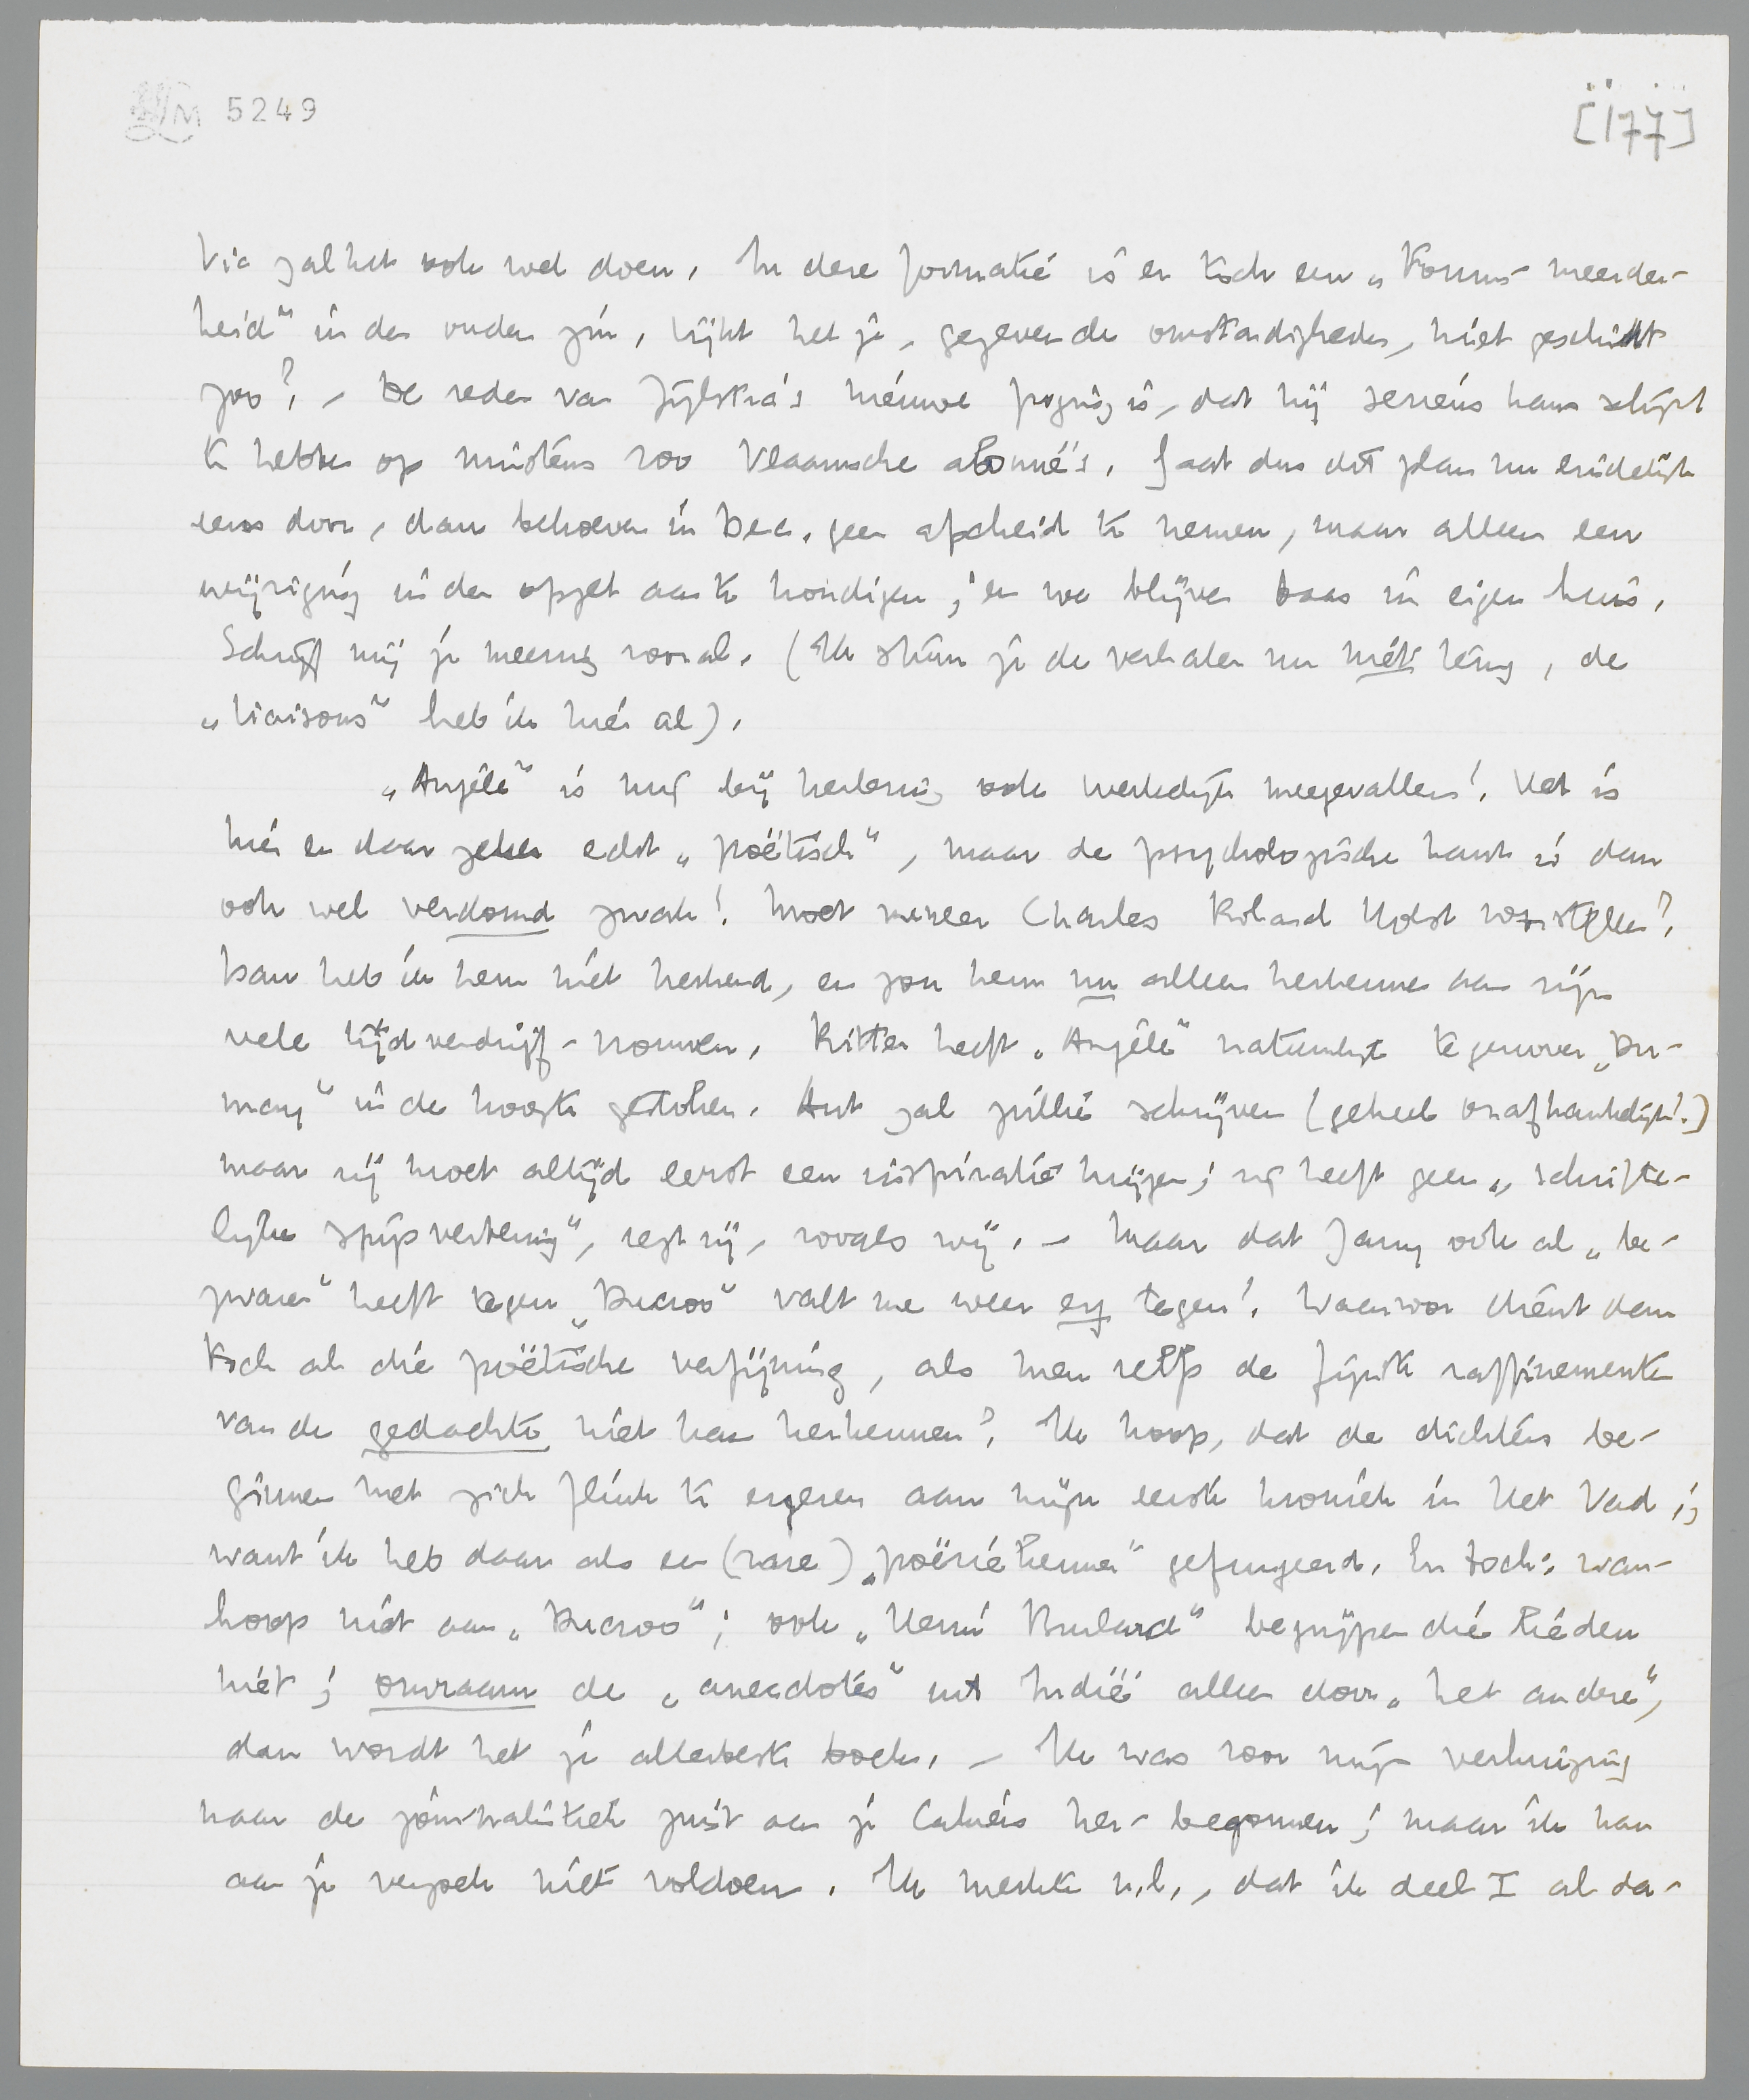 5249
[177]
Vic zal het ook wel doen. In deze formatie is er toch een „Forum-meerder-
heid” in den ouden zin. Lijkt het je, gegeven de omstandigheden, niet geschikt
zoo? - De reden van Zijlstra's nieuwe poging is, dat hij serieus kans schijnt
te hebben op minstens 200 Vlaamsche abonné's. Gaat dus dit plan nu eindelijk
eens door, dan behoeven in Dec. geen afscheid te nemen, maar alleen een
wijziging in den opzet aan te kondigen; en we blijven baas in eigen huis.
Schrijf mij je meening vooral. (Ik stuur je de verhalen nu niet terug, de
„Liaisons” heb ik hier al).
„Angèle” is mij bij herlezing ook werkelijk meegevallen! Het is
hier en daar zeker echt „poëtisch”, maar de psychologische kant is dan
ook wel verdomd zwak! Moet meneer Charles Roland Holst voorstellen?
Dan heb ik hem niet herkend, en zou hem nu alleen herkennen aan zijn
vele tijdverdrijf-vrouwen. Ritter heeft „Angèle” natuurlijk tegenover „Du-
may” in de hoogte gestoken. Ant zal jullie schrijven (geheel onafhankelijk!)
maar zij moet altijd eerst een inspiratie krijgen; zij heeft geen „schrifte-
lijke spijsvertering”, zegt zij, zooals wij. - Maar dat Jany ook al „be-
zwaren” heeft tegen „Ducroo” valt me weer erg tegen! Waarvoor dient dan
toch al die poëtische verfijning, als men zelfs de fijnste raffinementen
van de gedachte niet kan herkennen? Ik hoop, dat de dichters be-
ginnen met zich flink te ergeren aan mijn eerste kroniek in Het Vad.;
want ik heb daar als een (rare) „poëziekenner” gefungeerd. En toch: wan-
hoop niet aan „Ducroo”; ook „Henri Brulard” begrijpen die lieden
niet; omraam de „anecdotes” uit Indië alleen door „het andere”,
dan wordt het je allerbeste boek. - Ik was voor mijn verhuizing
naar de journalistiek juist aan je Cahiers her-begonnen; maar ik kan
aan je verzoek niet voldoen. Ik merkte n.l., dat ik deel I al da-